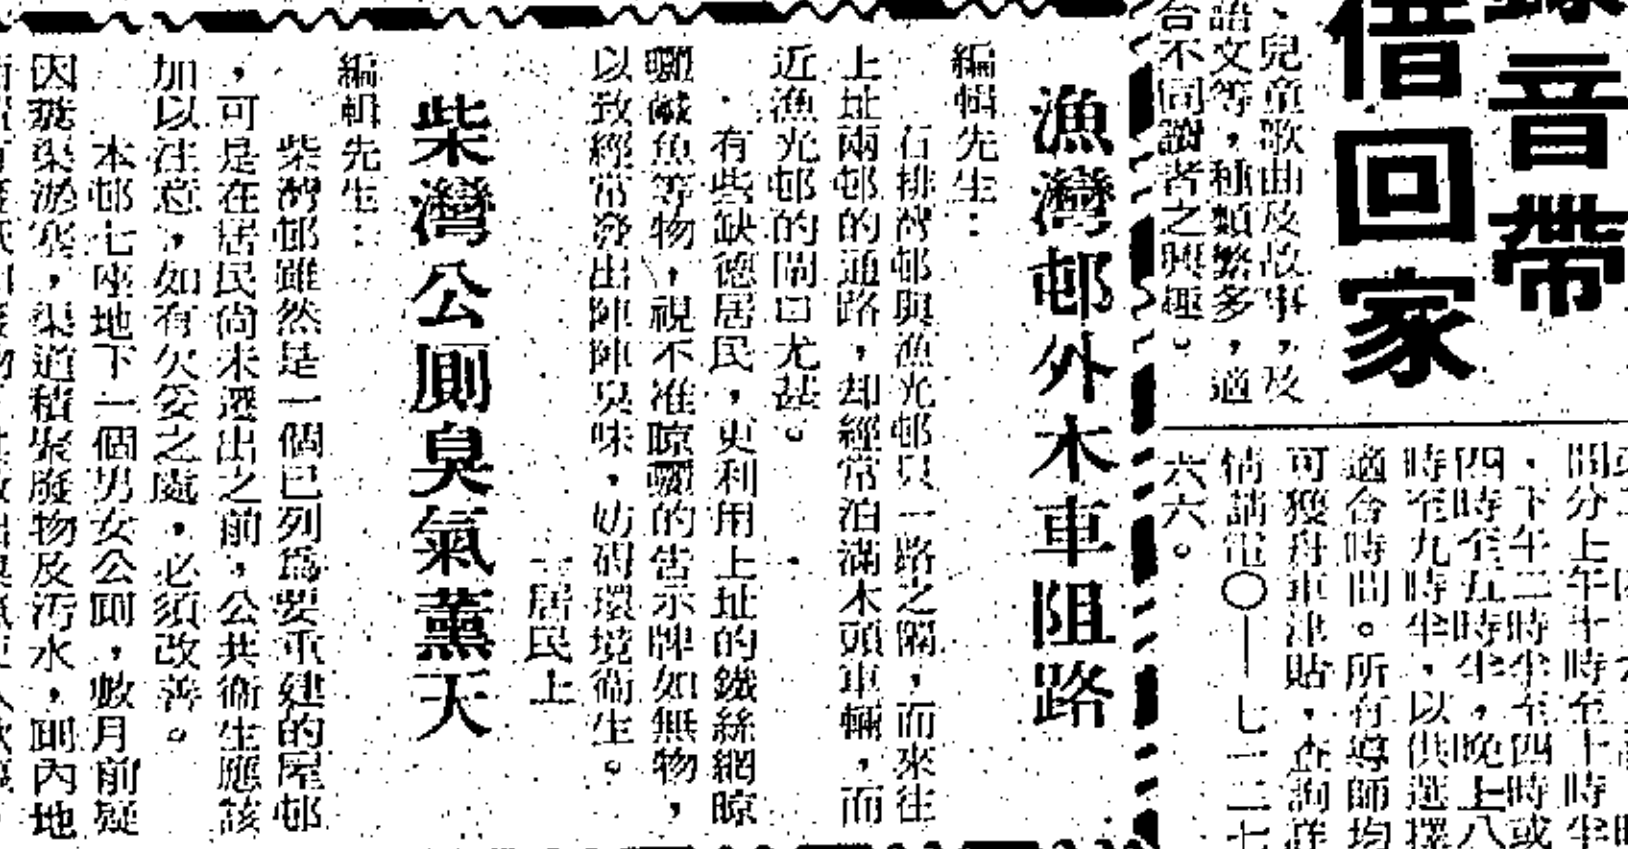 錄音帶
借回家
、兒童歌曲及故事，及
語文等，種類繁多，適
合不同讀者之興趣。
間分上午十時至十時半
、下午二時半至四時或
四時至五時半，晚上八
時至九時半，以供選擇
適合時間。所有導師均
可獲舟車津貼，查詢詳
情請電〇—七一二七
六六。
漁灣邨外木車阻路
編輯先生：
石排灣邨與漁光邨只一路之隔，而來往
上址兩邨的通路，却經常泊滿木頭車輛，而
近漁光邨的閘口尤甚。
有些缺德居民，更利用上址的鐵絲網晾
曬鹹魚等物，視不准晾曬的告示牌如無物，
以致經常發出陣陣臭味，妨碍環境衞生。
一居民上
柴灣公厠臭氣薰天
編輯先生：
柴灣邨雖然是一個已列爲要重建的屋邨
，可是在居民尚未遷出之前，公共衞生應該
加以注意，如有欠妥之處，必須改善。
本邨七座地下一個男女公厠，數月前疑
因糞渠淤塞，渠道積聚廢物及汚水，厠內地